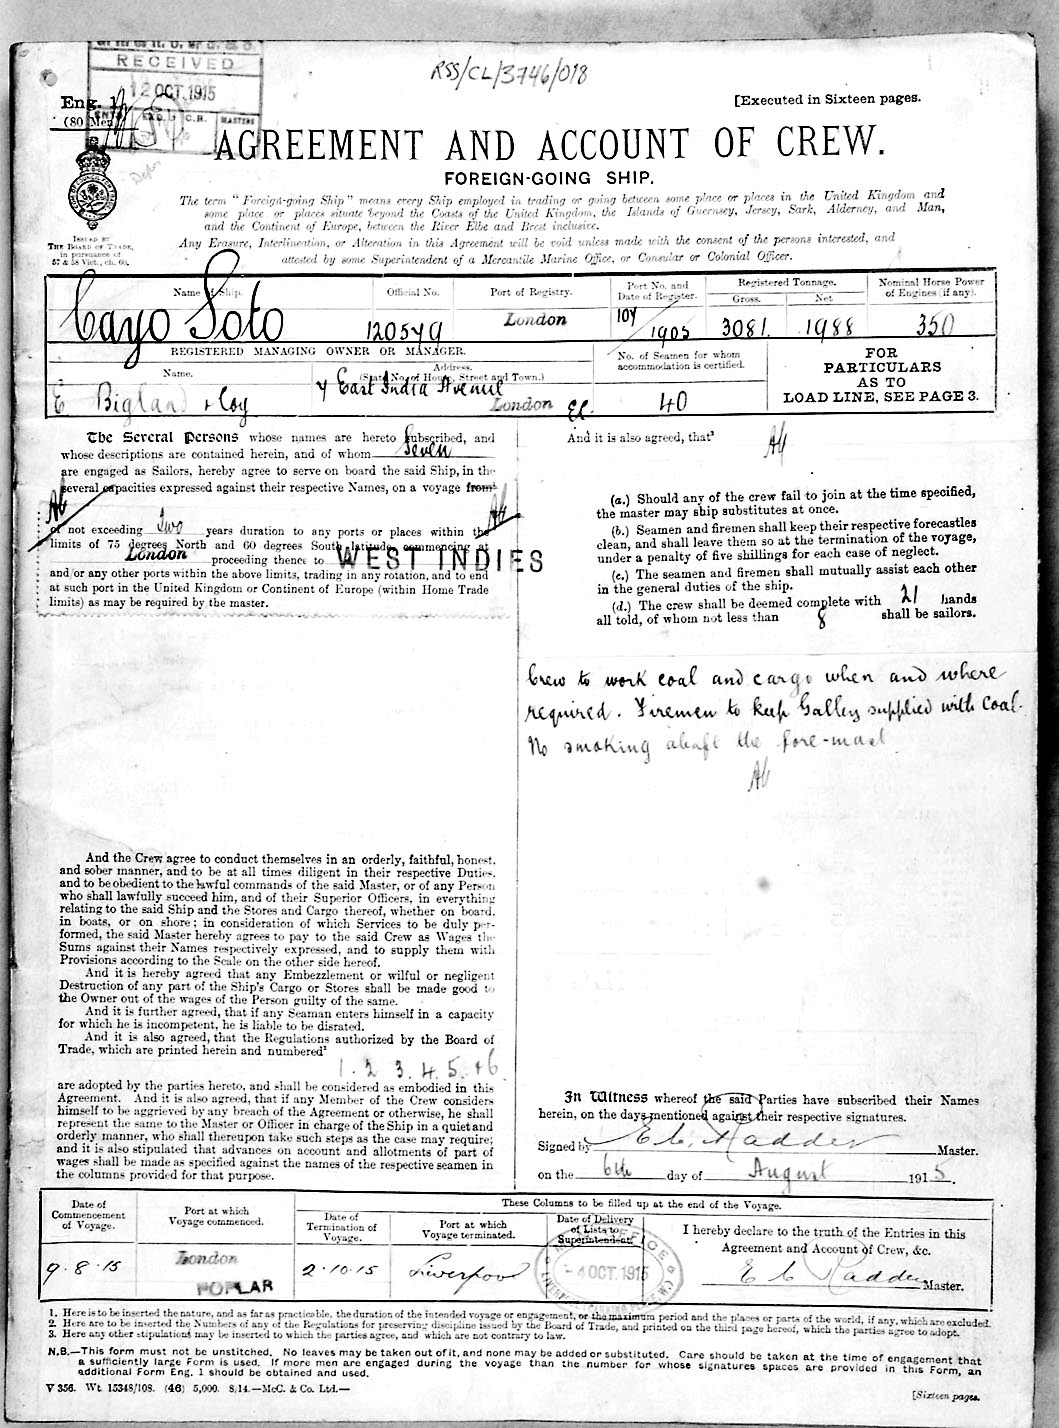 RECEIVED
12 OCT 1915
C.R.
MASTERS
RSS/CL/3746/018
Eng. 1
(80 Men
[Executed in Sixteen pages.
AGREEMENT AND ACCOUNT OF CREW.
FOREIGN-GOING SHIP.
ISSUED BY
THE BOARD OF TRADE,
in pursuance of
57 & 58 Vict., ch. 60.
The term "Foreign-going Ship" means every Ship employed in trading or going between some place or places in the United Kingdom and
some place or places situate beyond the Coasts of the United Kingdom, the Islands of Guernsey, Jersey, Sark, Alderney, and Man,
and the Continent of Europe, between the River Elbe and Brest inclusive.
Any Erasure, Interlineation, or Alteration in this Agreement will be void unless made with the consent of the persons interested, and
attested by some Superintendent of a Mercantile Marine Office, or Consular or Colonial Officer.
Name of Ship. Official No. Port of Registry. Port No. and Date of Register. Registered Tonnage. Gross. Net. Nominal Horse Power of Engines (if any).
Cayo Soto 120579 London 104/1905 3081. 1988 350
REGISTERED MANAGING OWNER OR MANAGER.
Name. Address. (State No. of House, Street and Town.) No. of Seamen for whom accommodation is certified.
E Bigland & Coy 4 East India Avenue London EC. 40
FOR
PARTICULARS
AS TO
LOAD LINE, SEE PAGE 3.
The Several Persons whose names are hereto subscribed, and
whose descriptions are contained herein, and of whom Seven
are engaged as Sailors, hereby agree to serve on board the said Ship, in the
several capacities expressed against their respective Names, on a voyage from¹
of not exceeding Two years duration to any ports or places within the
limits of 75 degrees North and 60 degrees South latitude, commencing at
London proceeding thence to WEST INDIES
and/or any other ports within the above limits, trading in any rotation, and to end
at such port in the United Kingdom or Continent of Europe (within Home Trade
limits) as may be required by the master.
And the Crew agree to conduct themselves in an orderly, faithful, honest,
and sober manner, and to be at all times diligent in their respective Duties,
and to be obedient to the lawful commands of the said Master, or of any Person
who shall lawfully succeed him, and of their Superior Officers, in everything
relating to the said Ship and the Stores and Cargo thereof, whether on board,
in boats, or on shore; in consideration of which Services to be duly per-
formed, the said Master hereby agrees to pay to the said Crew as Wages the
Sums against their Names respectively expressed, and to supply them with
Provisions according to the Scale on the other side hereof.
And it is hereby agreed that any Embezzlement or wilful or negligent
Destruction of any part of the Ship's Cargo or Stores shall be made good to
the Owner out of the wages of the Person guilty of the same.
And it is further agreed, that if any Seaman enters himself in a capacity
for which he is incompetent, he is liable to be disrated.
And it is also agreed, that the Regulations authorized by the Board of
Trade, which are printed herein and numbered²
1. 2 3. 4. 5. & 6.
are adopted by the parties hereto, and shall be considered as embodied in this
Agreement. And it is also agreed, that if any Member of the Crew considers
himself to be aggrieved by any breach of the Agreement or otherwise, he shall
represent the same to the Master or Officer in charge of the Ship in a quiet and
orderly manner, who shall thereupon take such steps as the case may require;
and it is also stipulated that advances on account and allotments of part of
wages shall be made as specified against the names of the respective seamen in
the columns provided for that purpose.
And it is also agreed, that³
(a.) Should any of the crew fail to join at the time specified,
the master may ship substitutes at once.
(b.) Seamen and firemen shall keep their respective forecastles
clean, and shall leave them so at the termination of the voyage,
under a penalty of five shillings for each case of neglect.
(c.) The seamen and firemen shall mutually assist each other
in the general duties of the ship.
(d.) The crew shall be deemed complete with 21 hands
all told, of whom not less than 8 shall be sailors.
Crew to work coal and cargo when and where
required. Firemen to keep Galley supplied with Coal.
No smoking abaft the fore-mast
In Witness whereof the said Parties have subscribed their Names
herein, on the days mentioned against their respective signatures.
Signed by E C Radder Master.
on the 6th day of August 1915.
Date of Commencement of Voyage. Port at which Voyage commenced. These Columns to be filled up at the end of the Voyage.
Date of Termination of Voyage. Port at which Voyage terminated. Date of Delivery of Lists to Superintendent
I hereby declare to the truth of the Entries in this
Agreement and Account of Crew, &c.
9.8.15 London POPLAR 2.10.15 Liverpool -4 OCT 1915
E C Radder Master.
1. Here is to be inserted the nature, and as far as practicable, the duration of the intended voyage or engagement, or the maximum period and the places or parts of the world, if any, which are excluded.
2. Here are to be inserted the Numbers of any of the Regulations for preserving discipline issued by the Board of Trade, and printed on the third page hereof, which the parties agree to adopt.
3. Here any other stipulations may be inserted to which the parties agree, and which are not contrary to law.
N.B.—This form must not be unstitched. No leaves may be taken out of it, and none may be added or substituted. Care should be taken at the time of engagement that
a sufficiently large Form is used. If more men are engaged during the voyage than the number for whose signatures spaces are provided in this Form, an
additional Form Eng. 1 should be obtained and used.
V 356. Wt 15348/108. (46) 5,000. 8/14.—McC. & Co. Ltd.—
[Sixteen pages.